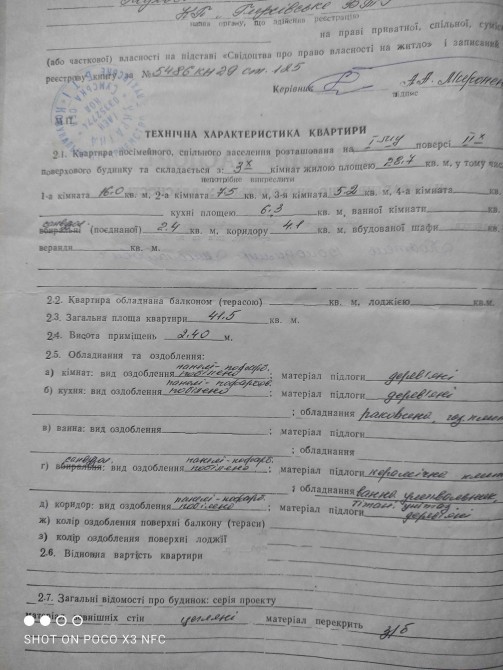 назва органу, що здійснює реєстрацію
на праві приватної, спільної,
(або часткової) власності на підставі «Свідоцтва про право власності на житло» і записаний
реєстрову книгу за № 5486 кн 29 ст. 185
Керівник А.А. Мироненк
підпис
М.П.
ТЕХНІЧНА ХАРАКТЕРИСТИКА КВАРТИРИ
2.1. Квартира посімейного, спільного заселення розташована на І-шу поверсі ІІх
непотрібне викреслити
поверхового будинку та складається з: 3х кімнат жилою площею 28.7 кв. м, у тому чис
1-а кімната 16.0 кв. м, 2-а кімната 7.5 кв. м, 3-я кімната 5.2 кв. м, 4-а кімната кв.
кухні площею 6.3 кв. м, ванної кімнати кв.
вбиральні (поєднаної) 2.4 кв. м, коридору 4.1 кв. м, вбудованої шафи кв.
веранди кв. м.
2.2. Квартира обладнана балконом (терасою) кв. м, лоджією кв.м.
2.3. Загальна площа квартири 41.5 кв. м.
2.4. Висота приміщень 2.40 м.
2.5. Обладнання та оздоблення:
а) кімнат: вид оздоблення панелі-пофарб. побілено; матеріал підлоги дерев'яні
б) кухня: вид оздоблення панелі-пофарбов. побілено; матеріал підлоги дерев'яні
; обладнання раковина, газ.плит
в) ванна: вид оздоблення ; матеріал підлоги
; обладнання
г) вбиральня: вид оздоблення панелі-пофарб. побілено; матеріал підлоги керамічна плит
; обладнання ванна, умивальник,
титан, унітаз
д) коридор: вид оздоблення панелі-пофарб. побілено; матеріал підлоги дерев'яні
ж) колір оздоблення поверхні балкону (тераси)
з) колір оздоблення поверхні лоджії
2.6. Відновна вартість квартири
2.7. Загальні відомості про будинок: серія проекту
зовнішніх стін цегляні матеріал перекрить з/б
SHOT ON POCO X3 NFC